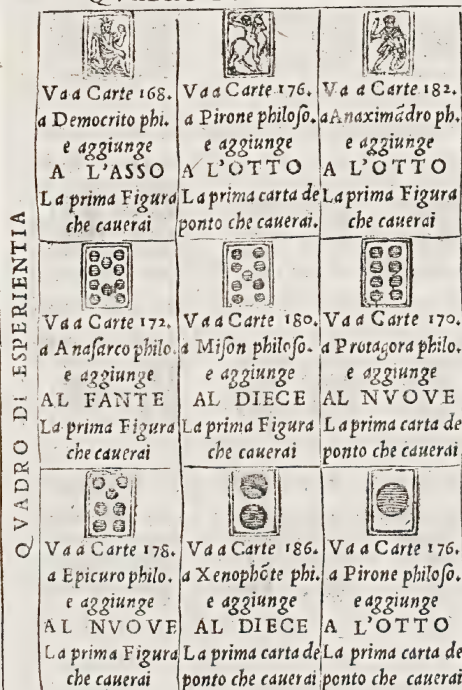 QVADRO DI ESPERIENTIA
Va a Carte 168.
a Democrito phi.
e aggiunge
A L'ASSO
La prima Figura
che cauerai
Va a Carte 176.
a Pirone philoſo.
e aggiunge
A L'OTTO
La prima carta de
ponto che cauerai.
Va a Carte 182.
a Anaximãdro ph.
e aggiunge
A L'OTTO
La prima Figura
che cauerai
Va a Carte 172.
a Anaſarco philo.
e aggiunge
AL FANTE
La prima Figura
che cauerai
Va a Carte 180.
a Miſon philoſo.
e aggiunge
AL DIECE
La prima Figura
che cauerai
Va a Carte 170.
a Protagora philo.
e aggiunge
AL NVOVE
La prima carta de
ponto che cauerai.
Va a Carte 178.
a Epicuro philo.
e aggiunge
AL NVOVE
La prima Figura
che cauerai
Va a Carte 186.
a Xenophõte phi.
e aggiunge
AL DIECE
La prima carta de
ponto che cauerai
Va a Carte 176.
a Pirone philoſo.
e aggiunge
A L'OTTO
La prima carta de
ponto che cauerai